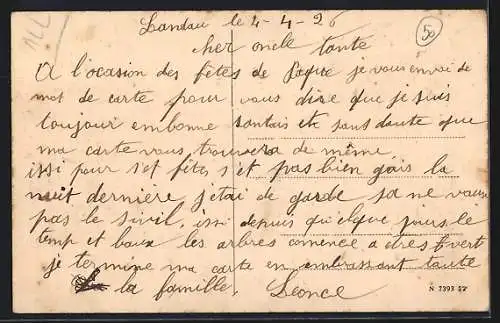 Landau le 4-4-26
cher oncle tante
A l'ocasion des fêtes de paque je vous envoi se
mot de carte pour vous dire que je suis
toujour enbonne santais et sans doute que
ma carte vous trouvera de même
issi pour s'et fêtes s'et pas bien gais la
nuit dernière j'etai de garde sa ne vaux
pas le sivil, issi depuis quelque jours le
temp et baux les arbres comence a etres vert
je termine ma carte en embrassant toute
la famille, Leonce
N 7393
50